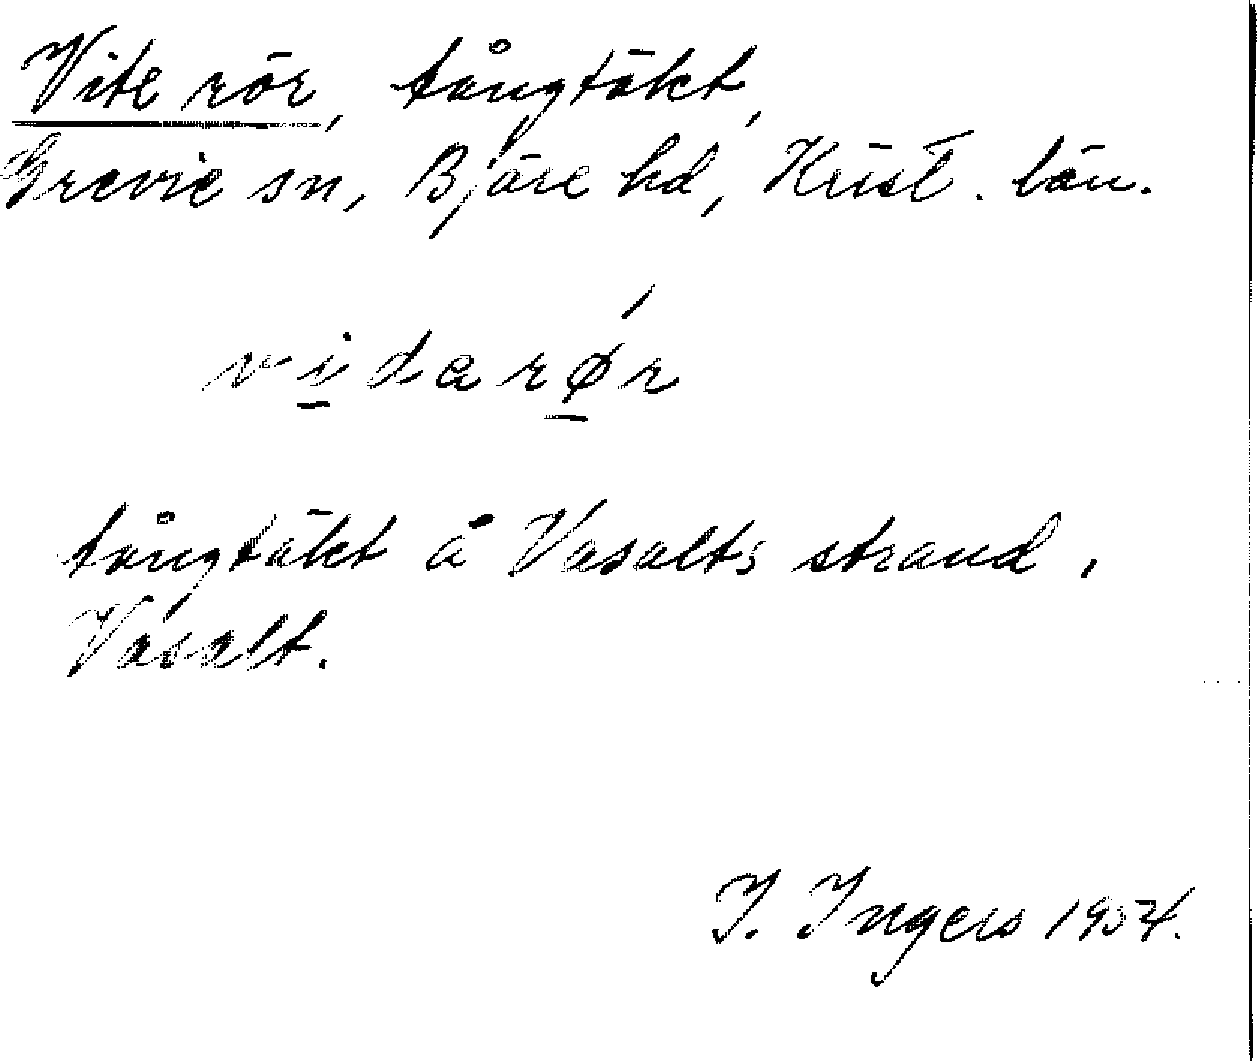 Vite rör, tångtäkt,
Grevie sn, Bjäre hd, Krist. län.
vi̱darǿ̱r
tångtäkt å Vasalts strand,
Vasalt.
I. Ingers 1954.